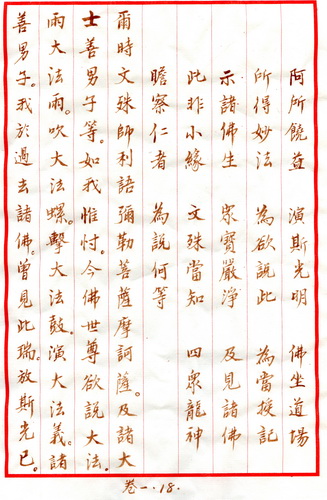 阿所饒益　演斯光明　佛坐道場
所得妙法　為欲說此　為當授記
示諸佛生　衆寶嚴淨　及見諸佛
此非小緣　文殊當知　四衆龍神
瞻察仁者　為說何等
爾時文殊師利語彌勒菩薩摩訶薩。及諸大
士善男子等。如我惟忖。今佛世尊欲說大法.
雨大法雨。吹大法螺。擊大法鼓。演大法義。諸
善男子。我於過去諸佛。曾見此瑞。放斯光已。
卷一.18.